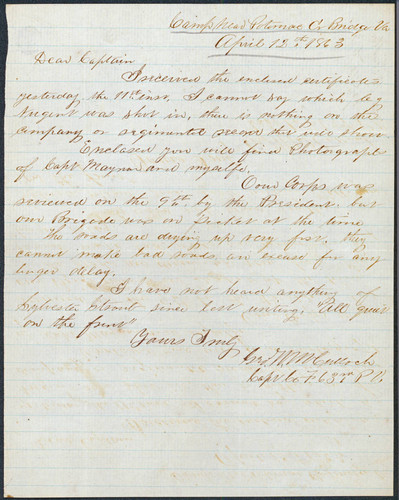 Camp near Potomac C. Bridge Va
April 12th 1863
Dear Captain
I received the enclosed certificate
yesterday the 11th inst. I cannot say which leg
Nugent was shot in, there is nothing on the
company or regimental record that will show
Enclosed you will find Photographs
of Capt Maynar and myselfe.
Our Corps was
reviewed on the 9th by the President. but
our Brigade was on Picket at the time
The roads are drying up very fast. they
cannot make bad roads, an excuse for any
longer delay.
I have not heard anything of
Sylvester since last writing. "All quiet
on the front"
Yours Truly
Geo W. McCulloch
Capt Co F. 63rd P. V.